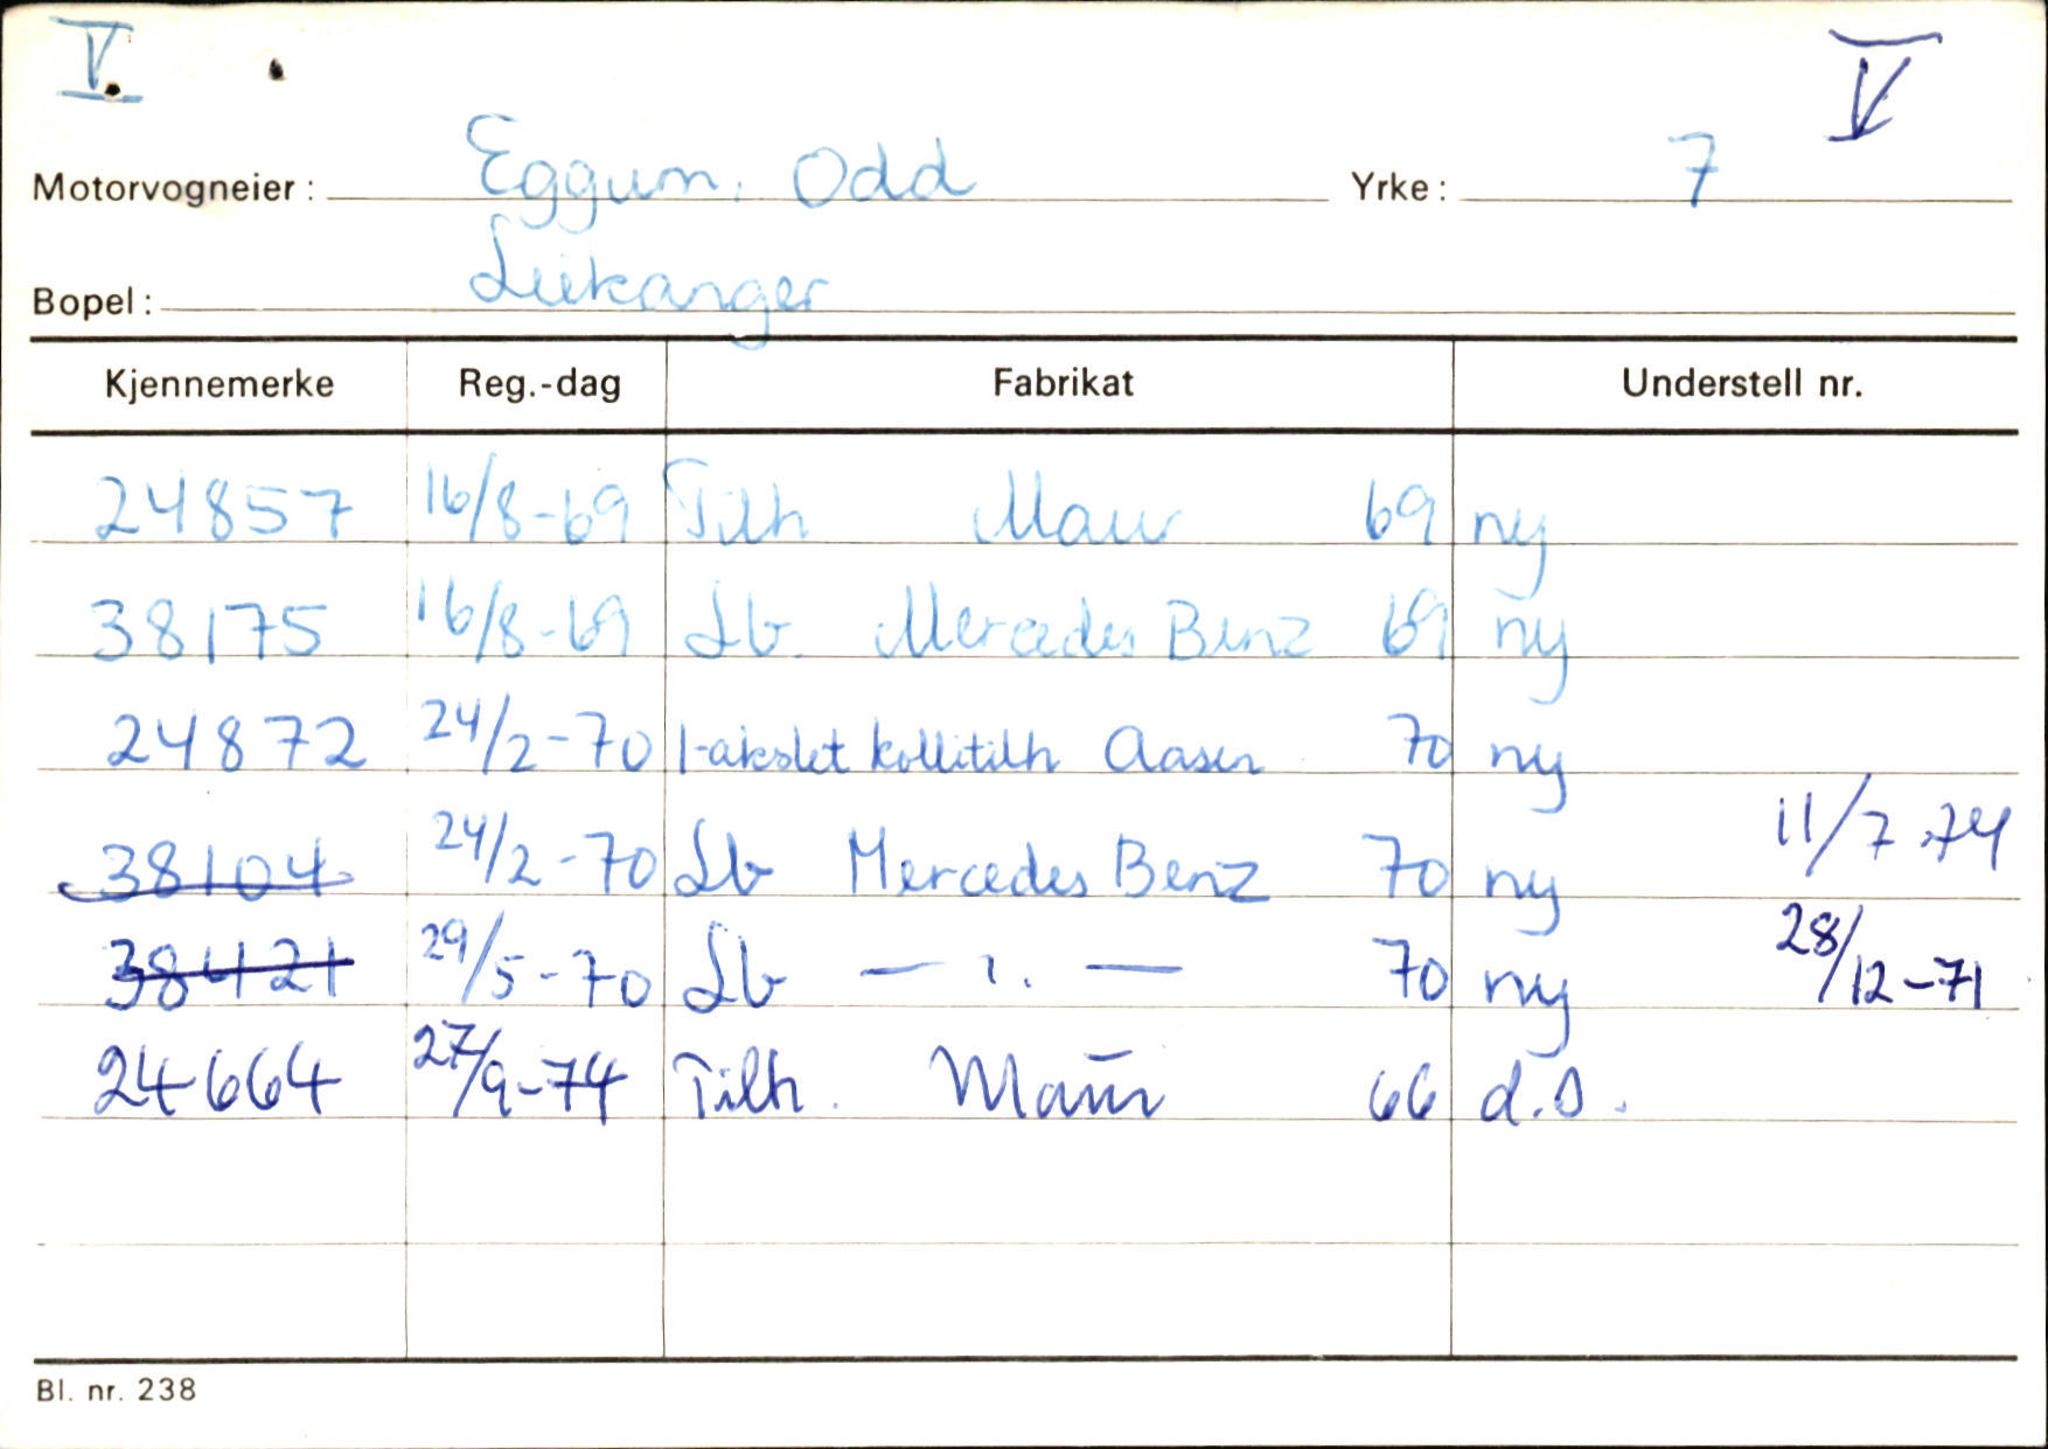 V. V
Motorvogneier: Eggum, Odd Yrke: 7
Bopel: Leikanger
Kjennemerke Reg.-dag Fabrikat Understell nr.
24857 16/8-69 Tilh Maur 69 ny
38175 16/8-69 Lb. Mercedes Benz 69 ny
24872 24/2-70 1-akslet kollitilh Aasen 70 ny
38104 24/2-70 Lb Mercedes Benz 70 ny 11/7.74
38421 29/5-70 Lb — ı. — 70 ny 28/12-71
24664 27/9-74 Tilh. Maur 66 d.s.
Bl. nr. 238